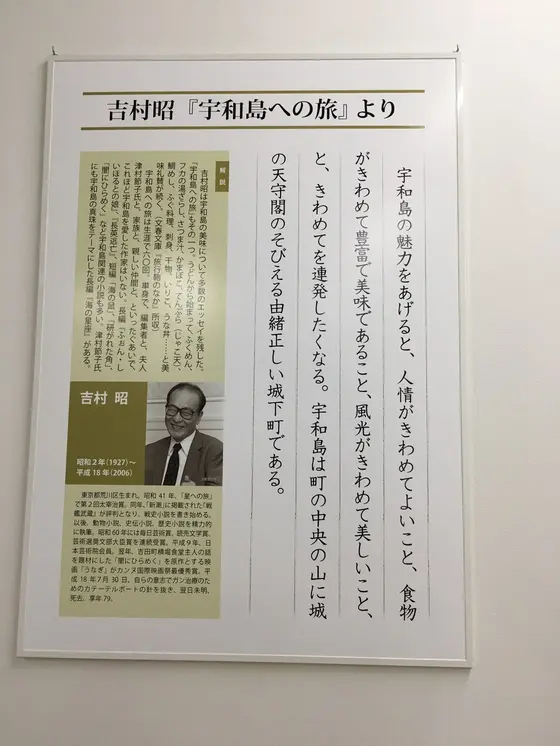 吉村昭『宇和島への旅』より
宇和島の魅力をあげると、人情がきわめてよいこと、食物
がきわめて豊富で美味であること、風光がきわめて美しいこと、
と、きわめてを連発したくなる。宇和島は町の中央の山に城
の天守閣のそびえる由緒正しい城下町である。
解説
吉村昭は宇和島の美味について多数のエッセイを残した。
『宇和島への旅』もその一つ。うどんから始まって、ふくめん、
フカの湯ざらし、さつま汁、かまぼこ、てんぷら(じゃこ天)、
鯛めし、ふぐ料理、刺身、干物、いりこ、うな丼……と美
味礼賛が続く。(文春文庫『旅行鞄のなか』所収)
宇和島への旅は生涯で六〇回。単身で、編集者と、夫人
津村節子氏と、家族と、親しい仲間と、といったぐあいで、
これほど宇和島を愛した作家はいない。長編『ふぉん・し
いほるとの娘』、『長英逃亡』、短編「海の鼠」、「研がれた角」、
「闇にひらめく」など宇和島関連の小説も多い。津村節子氏
にも宇和島の真珠をテーマにした長編『海の星座』がある。
吉村 昭
昭和2年(1927)〜
平成18年(2006)
東京都荒川区生まれ。昭和41年、「星への旅」
で第2回太宰治賞。同年、「新潮」に掲載された「戦
艦武蔵」が評判となり、戦史小説を書き始める。
以後、動物小説、史伝小説、歴史小説を精力的
に執筆。昭和60年には毎日芸術賞、読売文学賞、
芸術選奨文部大臣賞を連続受賞。平成9年、日
本芸術院会員。翌年、吉田町横堀食堂主人の話
を題材にした「闇にひらめく」を原作とする映
画「うなぎ」がカンヌ国際映画祭最優秀賞。平
成18年7月30日、自らの意志でガン治療のた
めのカテーテルポートの針を抜き、翌日未明、
死去。享年79。